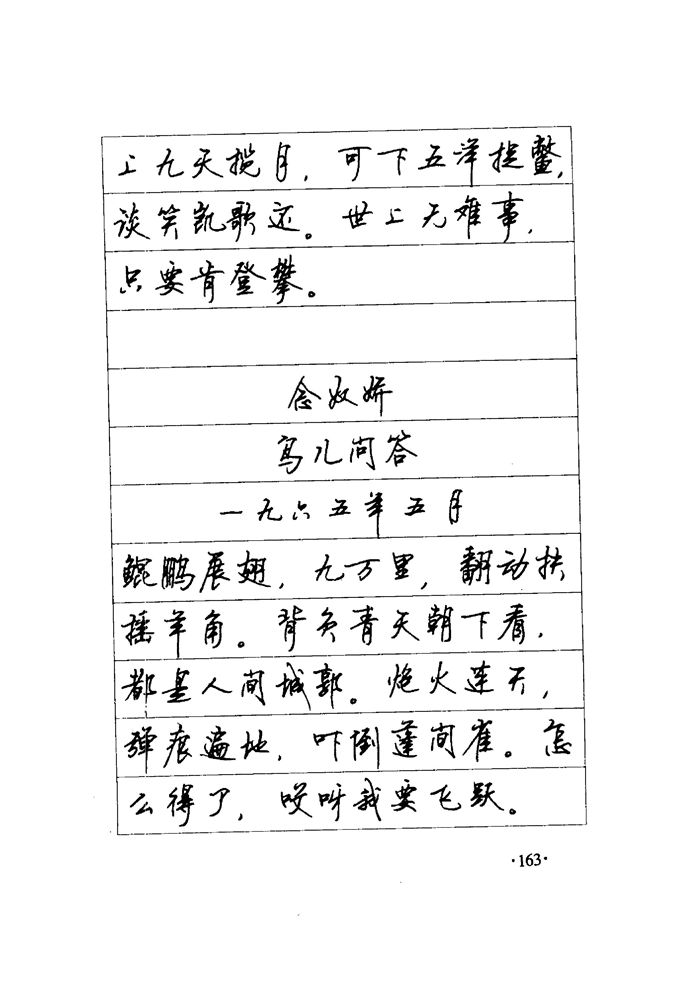 上九天揽月，可下五洋捉鳖，
谈笑凯歌还。世上无难事，
只要肯登攀。
念奴娇
鸟儿问答
一九六五年五月
鲲鹏展翅，九万里，翻动扶
摇羊角。背负青天朝下看，
都是人间城郭。炮火连天，
弹痕遍地，吓倒蓬间雀。怎
么得了，哎呀我要飞跃。
·163·